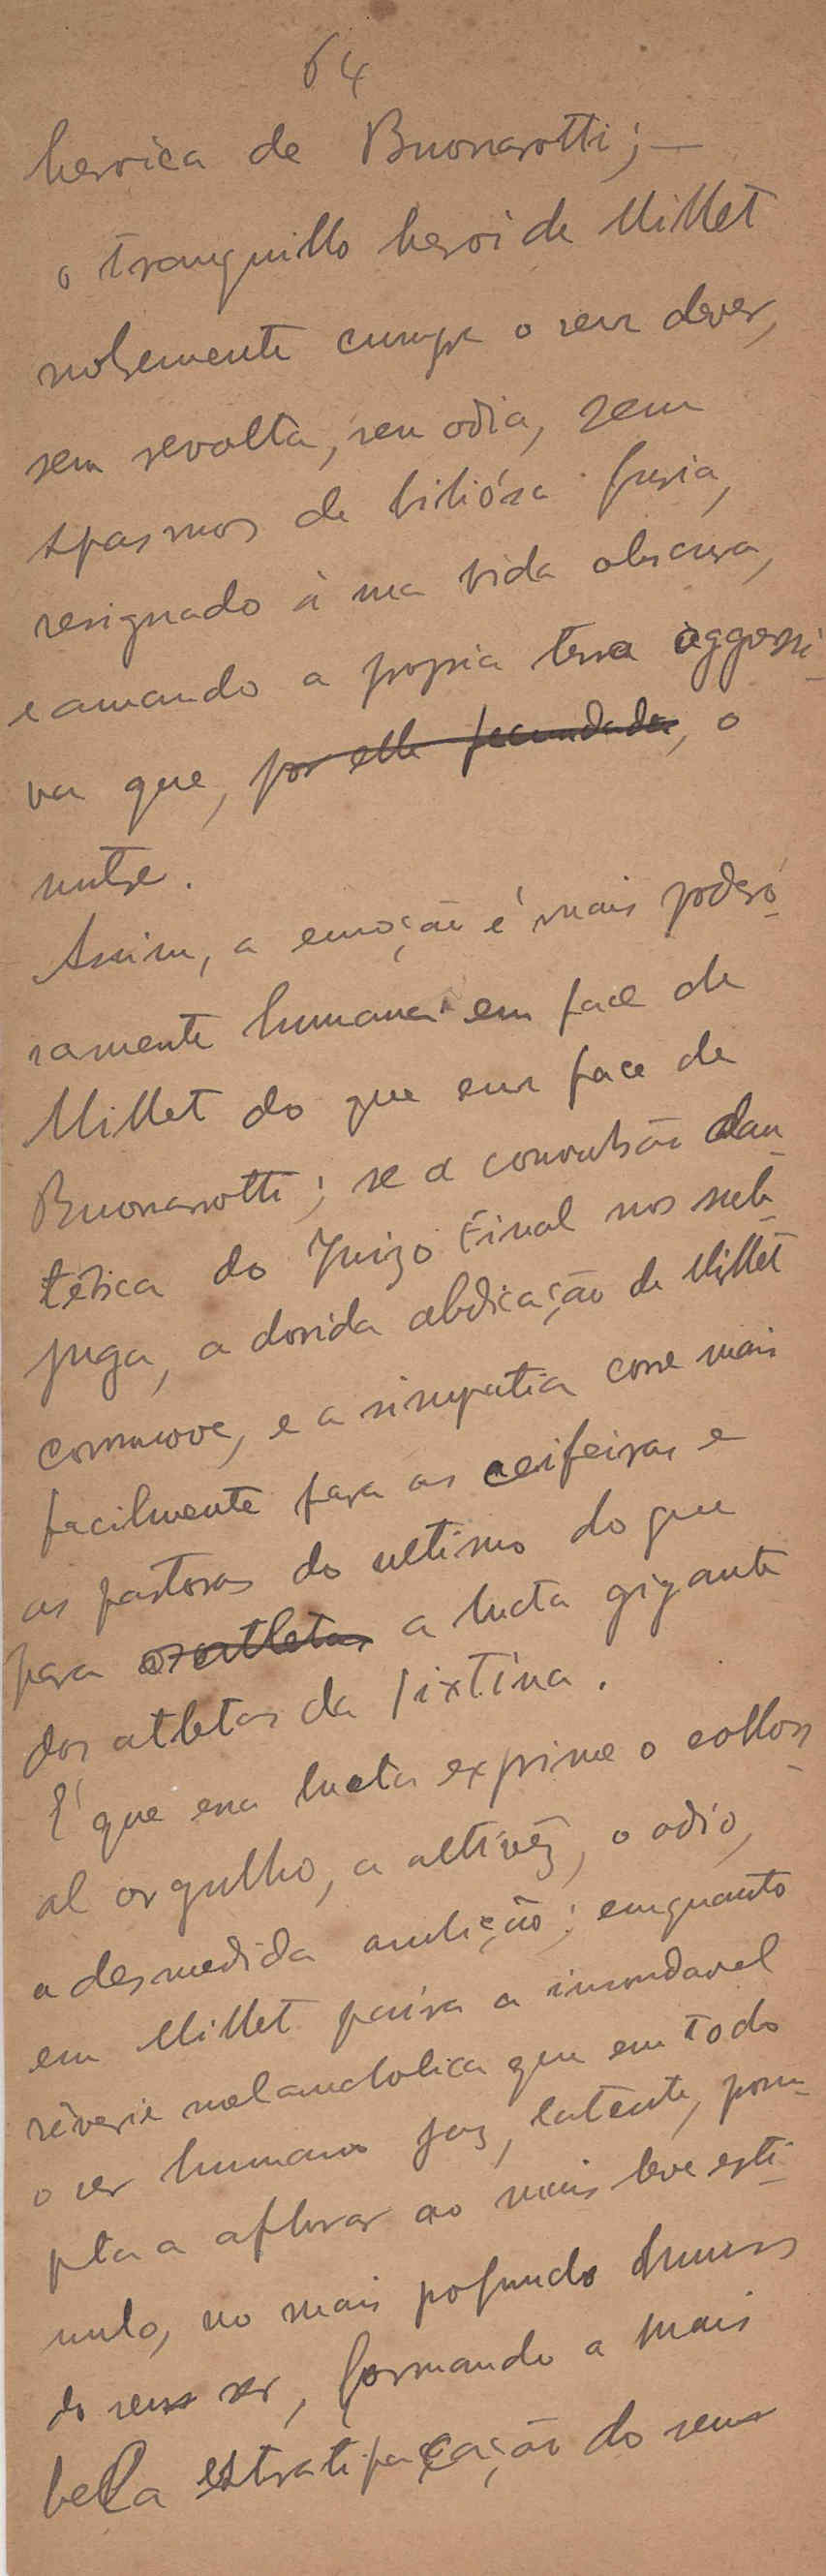 64
heroica de Buonarotti; —
o tranquillo heroi de Millet
nobremente cumpre o seu dever,
sem revolta, sem odio, sem
spasmos de biliósa furia,
resignado á sua vida obscura,
e amando a propria terra aggressi-
va que, por elle fecundada, o
nutre.
Assim, a emoção é mais poderó-
samente humana em face de
Millet do que em face de
Buonarrotti; se a convulsão dan-
tésca do Juizo Final nos sub-
juga, a dorida abdicação de Millet
commove, e a simpatia corre mais
facilmente para as ceifeiras e
as pastoras do ultimo do que
para os atletas a lucta gigante
dos atletas da Sixtina.
É que essa lucta exprime o coloss-
al orgulho, a altivêz, o odio,
a desmedida ambição; emquanto
em Millet paira a insondavel
rêverie melancholica que em todo
o ser humano jaz, latente, prom-
pta a aflorar ao mais leve esti-
mulo, no mais pofundo humus
do seu ser, formando a mais
bella estratificação do seu